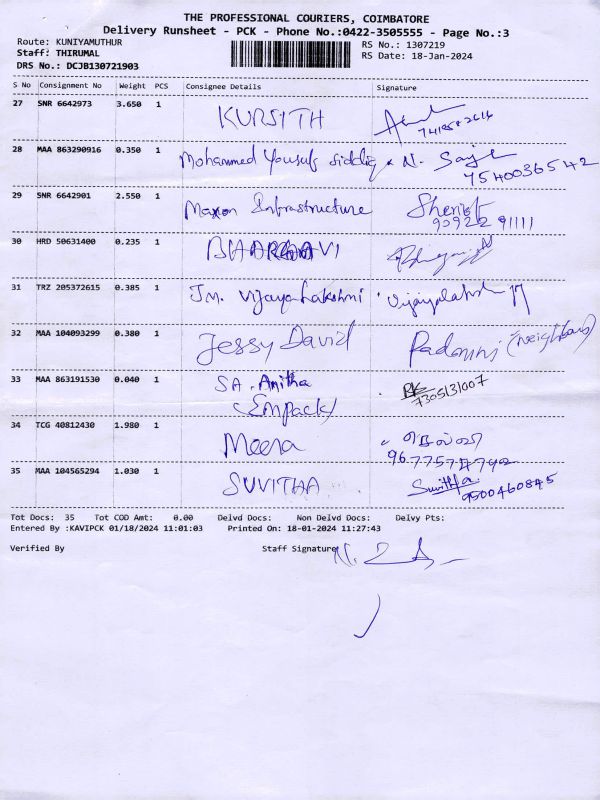 THE PROFESSIONAL COURIERS, COIMBATORE
Delivery Runsheet - PCK - Phone No.:0422-3505555 - Page No.:3
Route: KUNIYAMUTHUR
RS No.: 1307219
Staff: THIRUMAL
RS Date: 18-Jan-2024
DRS No.: DCJB130721903
S No Consignment No Weight PCS Consignee Details Signature
27 SNR 6642973 3.650 1 KURSITH
28 MAA 863290916 0.350 1 Mohammed Yousuf Siddiq N.
7540036542
29 SNR 6642901 2.550 1 Maxon Infrastructure Sherief
90922 91111
30 HRD 50631400 0.235 1 BHARGAVI
31 TRZ 205372615 0.385 1 Jm. Vijayalakshmi
32 MAA 104093299 0.380 1 Jessy David Padmini (Neighbour)
33 MAA 863191530 0.040 1 SA. Anitha
(Empack) 7305131007
34 TCG 40812430 1.980 1 Meena
35 MAA 104565294 1.030 1 SUVITHA Suvitha
9500460845
Tot Docs: 35 Tot COD Amt: 0.00 Delvd Docs: Non Delvd Docs: Delvy Pts:
Entered By :KAVIPCK 01/18/2024 11:01:03 Printed On: 18-01-2024 11:27:43
Verified By Staff Signature